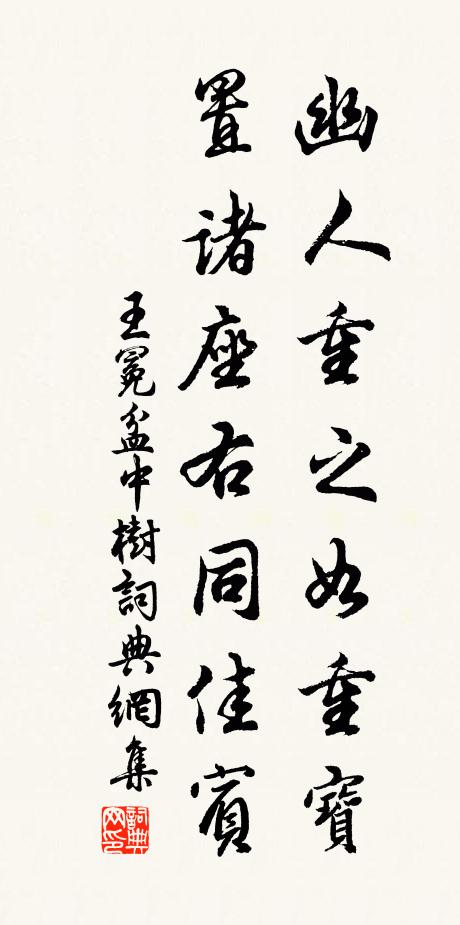 幽人重之如重寶
置諸座右同佳賓
王冕盆中樹詞典網集
詞典网印